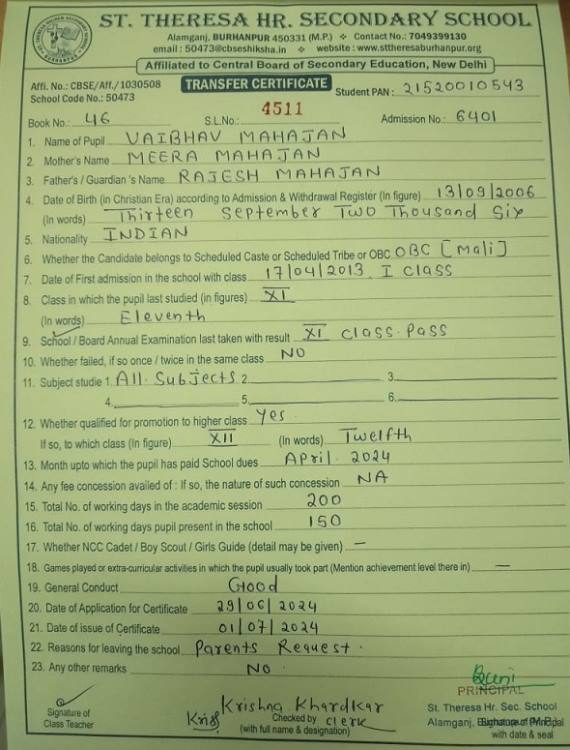 ST. THERESA HR. SECONDARY SCHOOL
Alamganj, BURHANPUR 450331 (M.P.) ❖ Contact No.: 7049399130
email : 50473@cbseshiksha.in ❖ website : www.sttheresaburhanpur.org
Affiliated to Central Board of Secondary Education, New Delhi
Affi. No.: CBSE/Aff./1030508 TRANSFER CERTIFICATE Student PAN : 21520010543
School Code No.: 50473
Book No.: 46 S.L.No.: 4511 Admission No.: 6401
1. Name of Pupil VAIBHAV MAHAJAN
2. Mother's Name MEERA MAHAJAN
3. Father's / Guardian 's Name RAJESH MAHAJAN
4. Date of Birth (in Christian Era) according to Admission & Withdrawal Register (In figure) 13/09/2006
(In words) Thirteen September Two Thousand Six
5. Nationality INDIAN
6. Whether the Candidate belongs to Scheduled Caste or Scheduled Tribe or OBC OBC [Mali]
7. Date of First admission in the school with class 17/04/2013 I class
8. Class in which the pupil last studied (in figures) XI
(In words) Eleventh
9. School / Board Annual Examination last taken with result XI class. Pass
10. Whether failed, if so once / twice in the same class NO
11. Subject studie 1. All. Subjects 2. 3.
4. 5. 6.
12. Whether qualified for promotion to higher class Yes
If so, to which class (In figure) XII (In words) Twelfth
13. Month upto which the pupil has paid School dues April. 2024
14. Any fee concession availed of : If so, the nature of such concession NA
15. Total No. of working days in the academic session 200
16. Total No. of working days pupil present in the school 150
17. Whether NCC Cadet / Boy Scout / Girls Guide (detail may be given) —
18. Games played or extra-curricular activities in which the pupil usually took part (Mention achievement level there in) —
19. General Conduct Good
20. Date of Application for Certificate 29/06/2024
21. Date of issue of Certificate 01/07/2024
22. Reasons for leaving the school Parents Request.
23. Any other remarks NO.
PRINCIPAL
Krishna Khardkar
Signature of Class Teacher
Checked by clerk
(with full name & designation)
St. Theresa Hr. Sec. School
Alamganj,
Signature of Principal
with date & seal